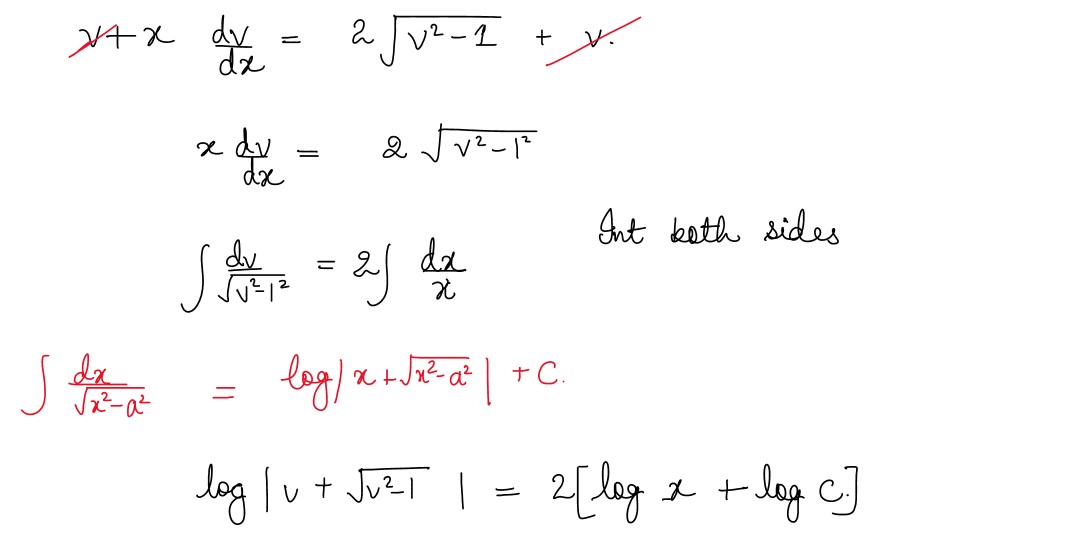 v + x dv/dx = 2√(v² - 1) + v.
x dv/dx = 2 √(v² - 1²)
Int both sides
∫ dv/√(v² - 1²) = 2∫ dx/x
∫ dx/√(x² - a²) = log|x + √(x² - a²)| + C.
log|v + √(v² - 1)| = 2[log x + log C.]